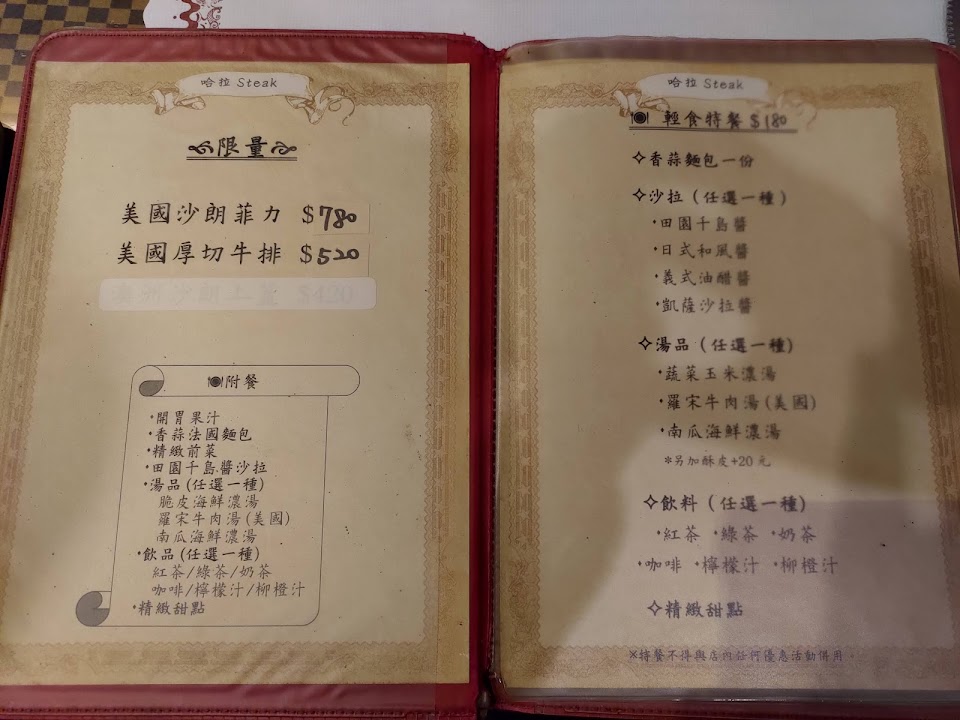 哈拉 Steak
限量
美國沙朗菲力 $780
美國厚切牛排 $520
附餐
·開胃果汁
·香蒜法國麵包
·精緻前菜
·田園千島醬沙拉
·湯品(任選一種)
脆皮海鮮濃湯
羅宋牛肉湯(美國)
南瓜海鮮濃湯
·飲品(任選一種)
紅茶/綠茶/奶茶
咖啡/檸檬汁/柳橙汁
·精緻甜點
哈拉 Steak
輕食特餐 $180
✧香蒜麵包一份
✧沙拉(任選一種)
·田園千島醬
·日式和風醬
·義式油醋醬
·凱薩沙拉醬
✧湯品(任選一種)
·蔬菜玉米濃湯
·羅宋牛肉湯(美國)
·南瓜海鮮濃湯
*另加酥皮+20元
✧飲料(任選一種)
·紅茶 ·綠茶 ·奶茶
·咖啡 ·檸檬汁 ·柳橙汁
✧精緻甜點
※特餐不得與店內任何優惠活動併用。